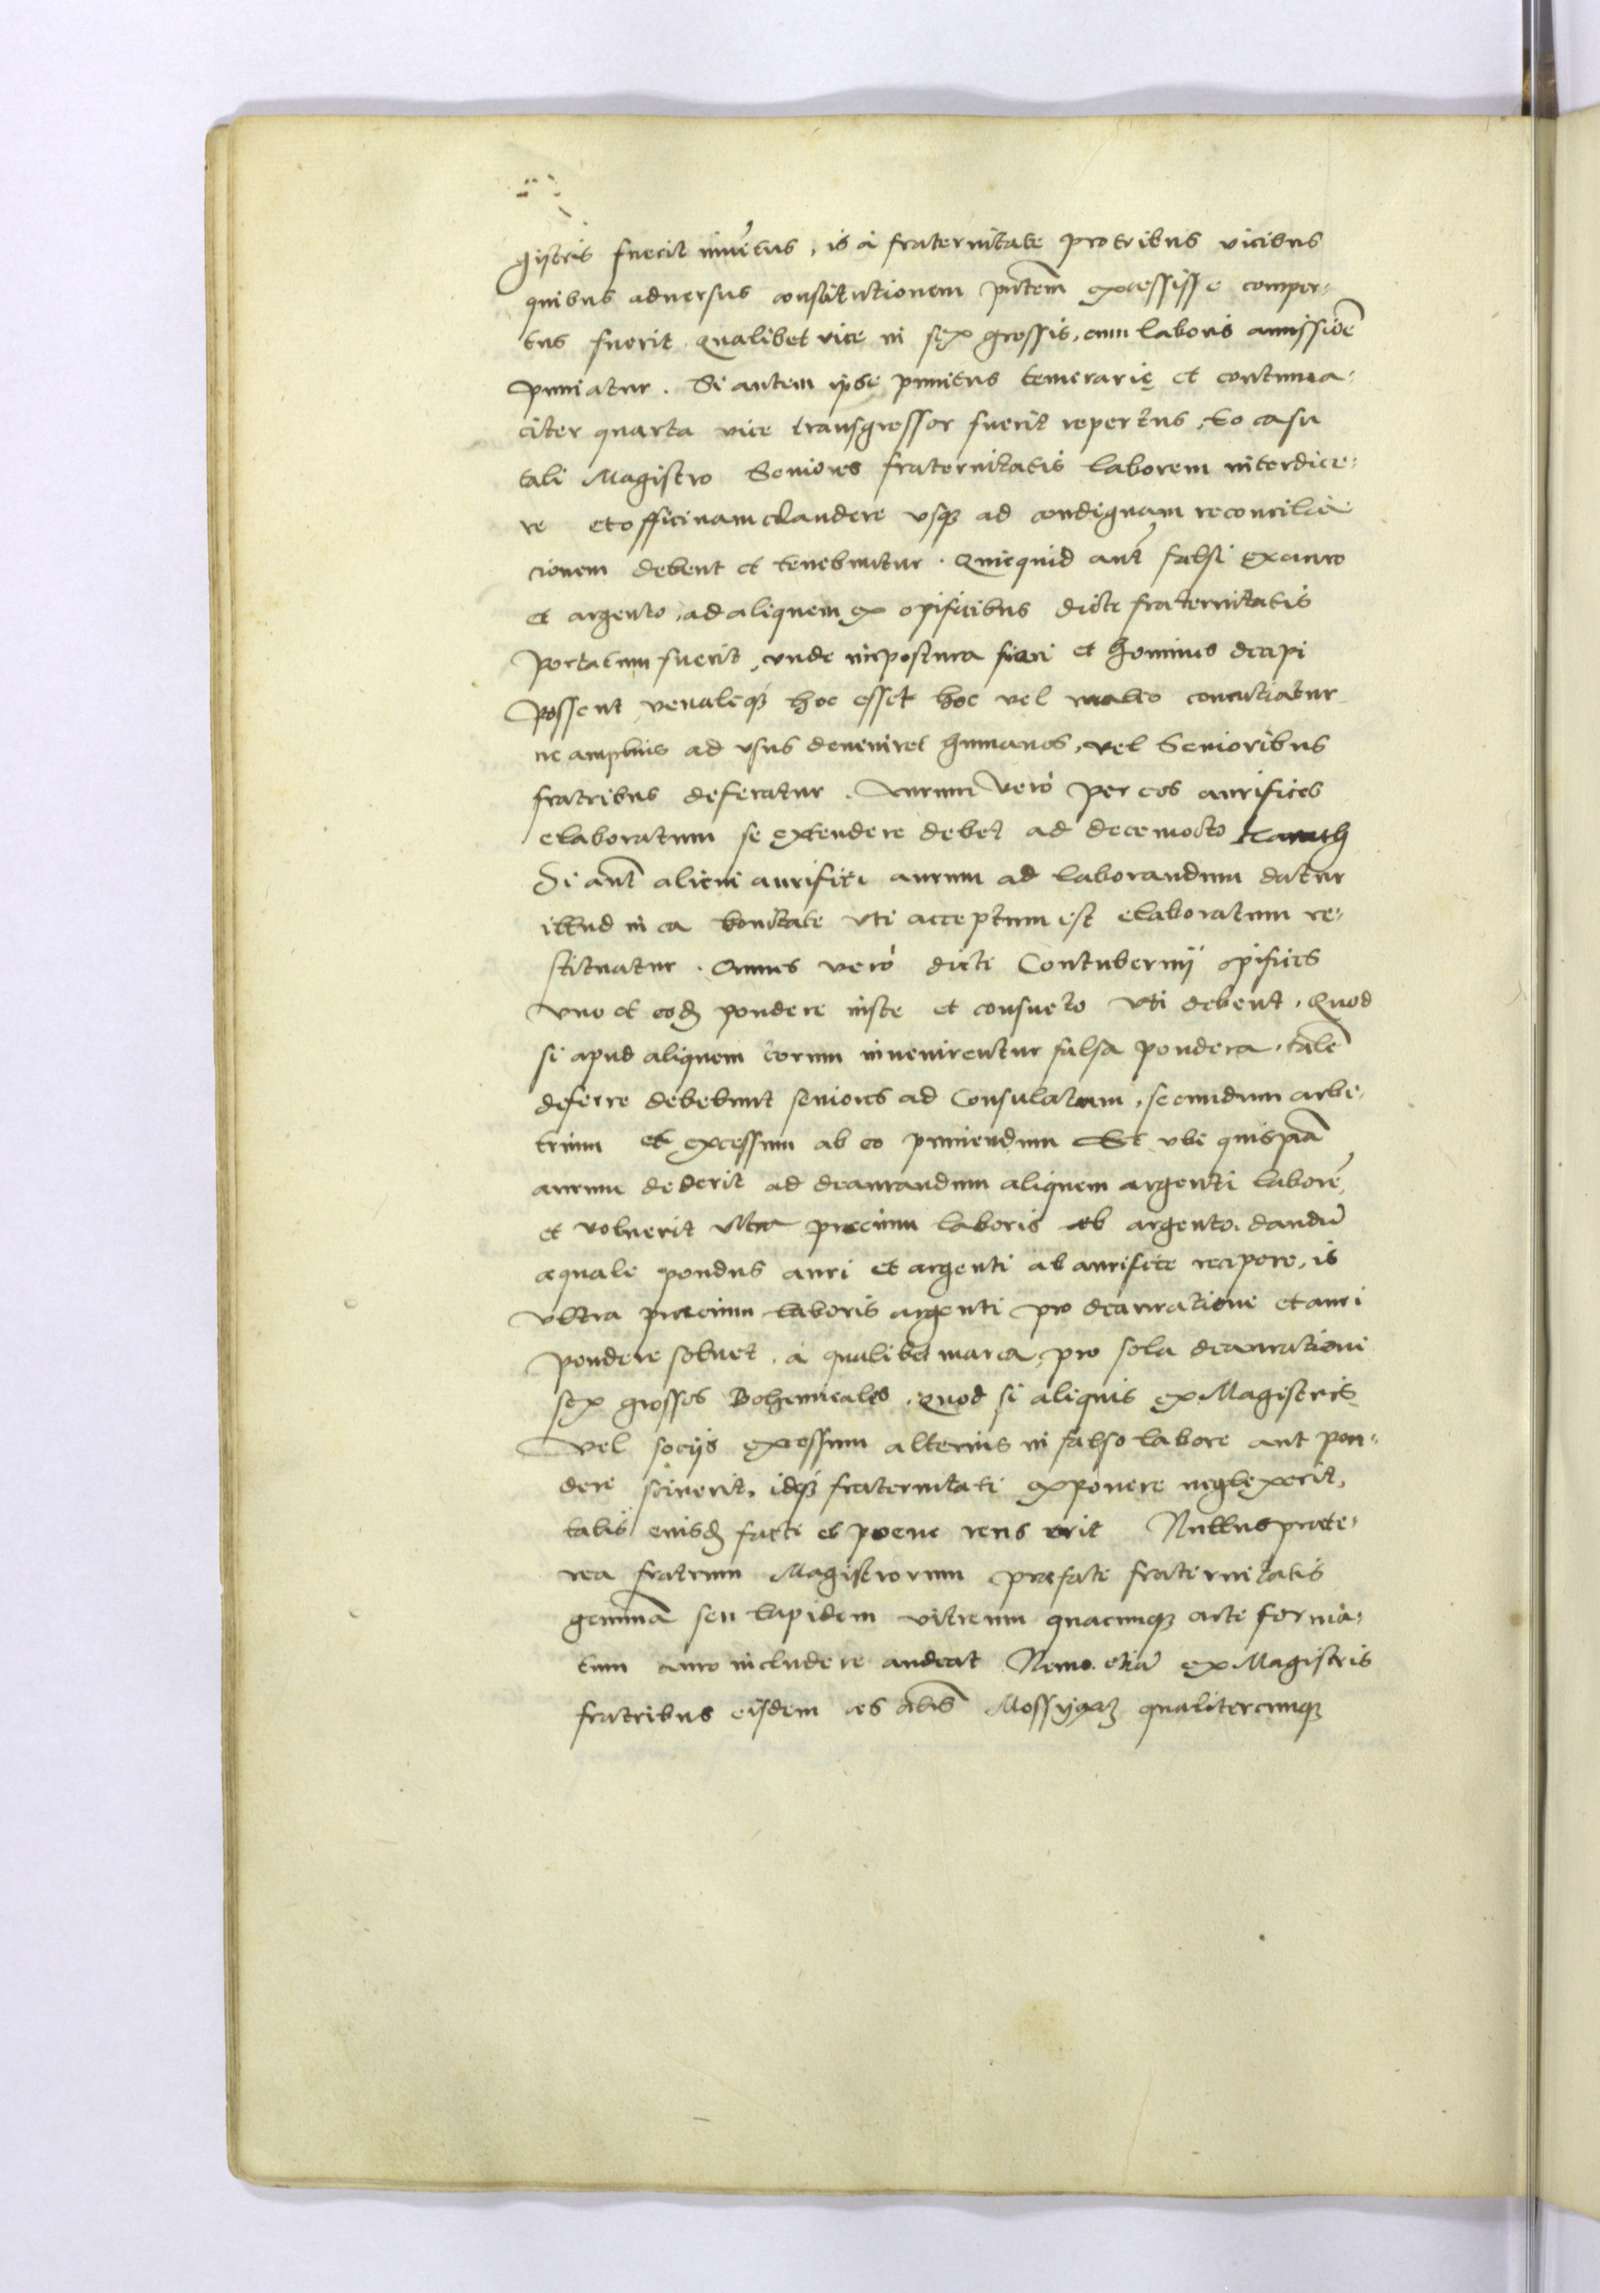 gistris fuerit inuẽtus, is à fraternitate pro tribus vicibus
quibus aduersus constitutionem pntem excessisse comper-
tus fuerit qualibet vice in sex grossis, cum laboris amissiõe
puniatur. Si autem ipse punitus temerarie et contuma-
citer quarta vice transgressor fuerit repertus, eo casu
tali Magistro Seniores fraternitatis laborem interdice-
re et officinam claudere vsq ad condignam reconcilia
cionem debent et tenebuntur. Quicquid aut falsi ex auro
et argento, ad aliquem ex opificibus dicte fraternitatis
portatum fuerit, vnde inpostura fieri et homines decipi
possent venaleq hoc esset hoc vel malleo concutiatur
ne amplius ad vsus deueniret humanos, vel Senioribus
fratribus deferatur. Aurum verò per eos aurifices
elaboratum se extendere debet ad decemocto Karath
Si aut alicui aurifici aurum ad laborandum datur
illud in ea bonitate vti acceptum est elaboratum re-
stituatur. Omnes verò dicti Contubernij opifices
vno et eod pondere iusto et consueto vti debent. Quod
si apud aliquem eorum inuenirentur falsa pondera, talẽ
deferre debebunt seniores ad Consulatum, secundum arbi-
trium et excessum ab eo puniendum Et vbi quispiã
aurum dederit ad deaurandum aliquem argenti laborẽ,
et voluerit vltra precium laboris ab argento dandũ
aequale pondus auri et argenti ab aurifice recipere, is
vltra precium laboris argenti pro deauratione et auri
pondere soluet, à qualibet marca, pro sola deauratione
sex grossos Bohemicales. Quod si aliquis ex Magistris
vel socijs excessum alterius in falso labore aut pon-
dere sciuerit, idq fraternitati exponere neglexerit,
talis eiusd facti et poene reus erit Nullus praete-
rea fratrum Magistrorum praefate fraternitatis
gemmã seu lapidem vitreum quacunq arte forma-
tum auro includere audeat Nemo etiã ex Magistris
fratribus eijsdem aes als Mossyądz qualitercunq